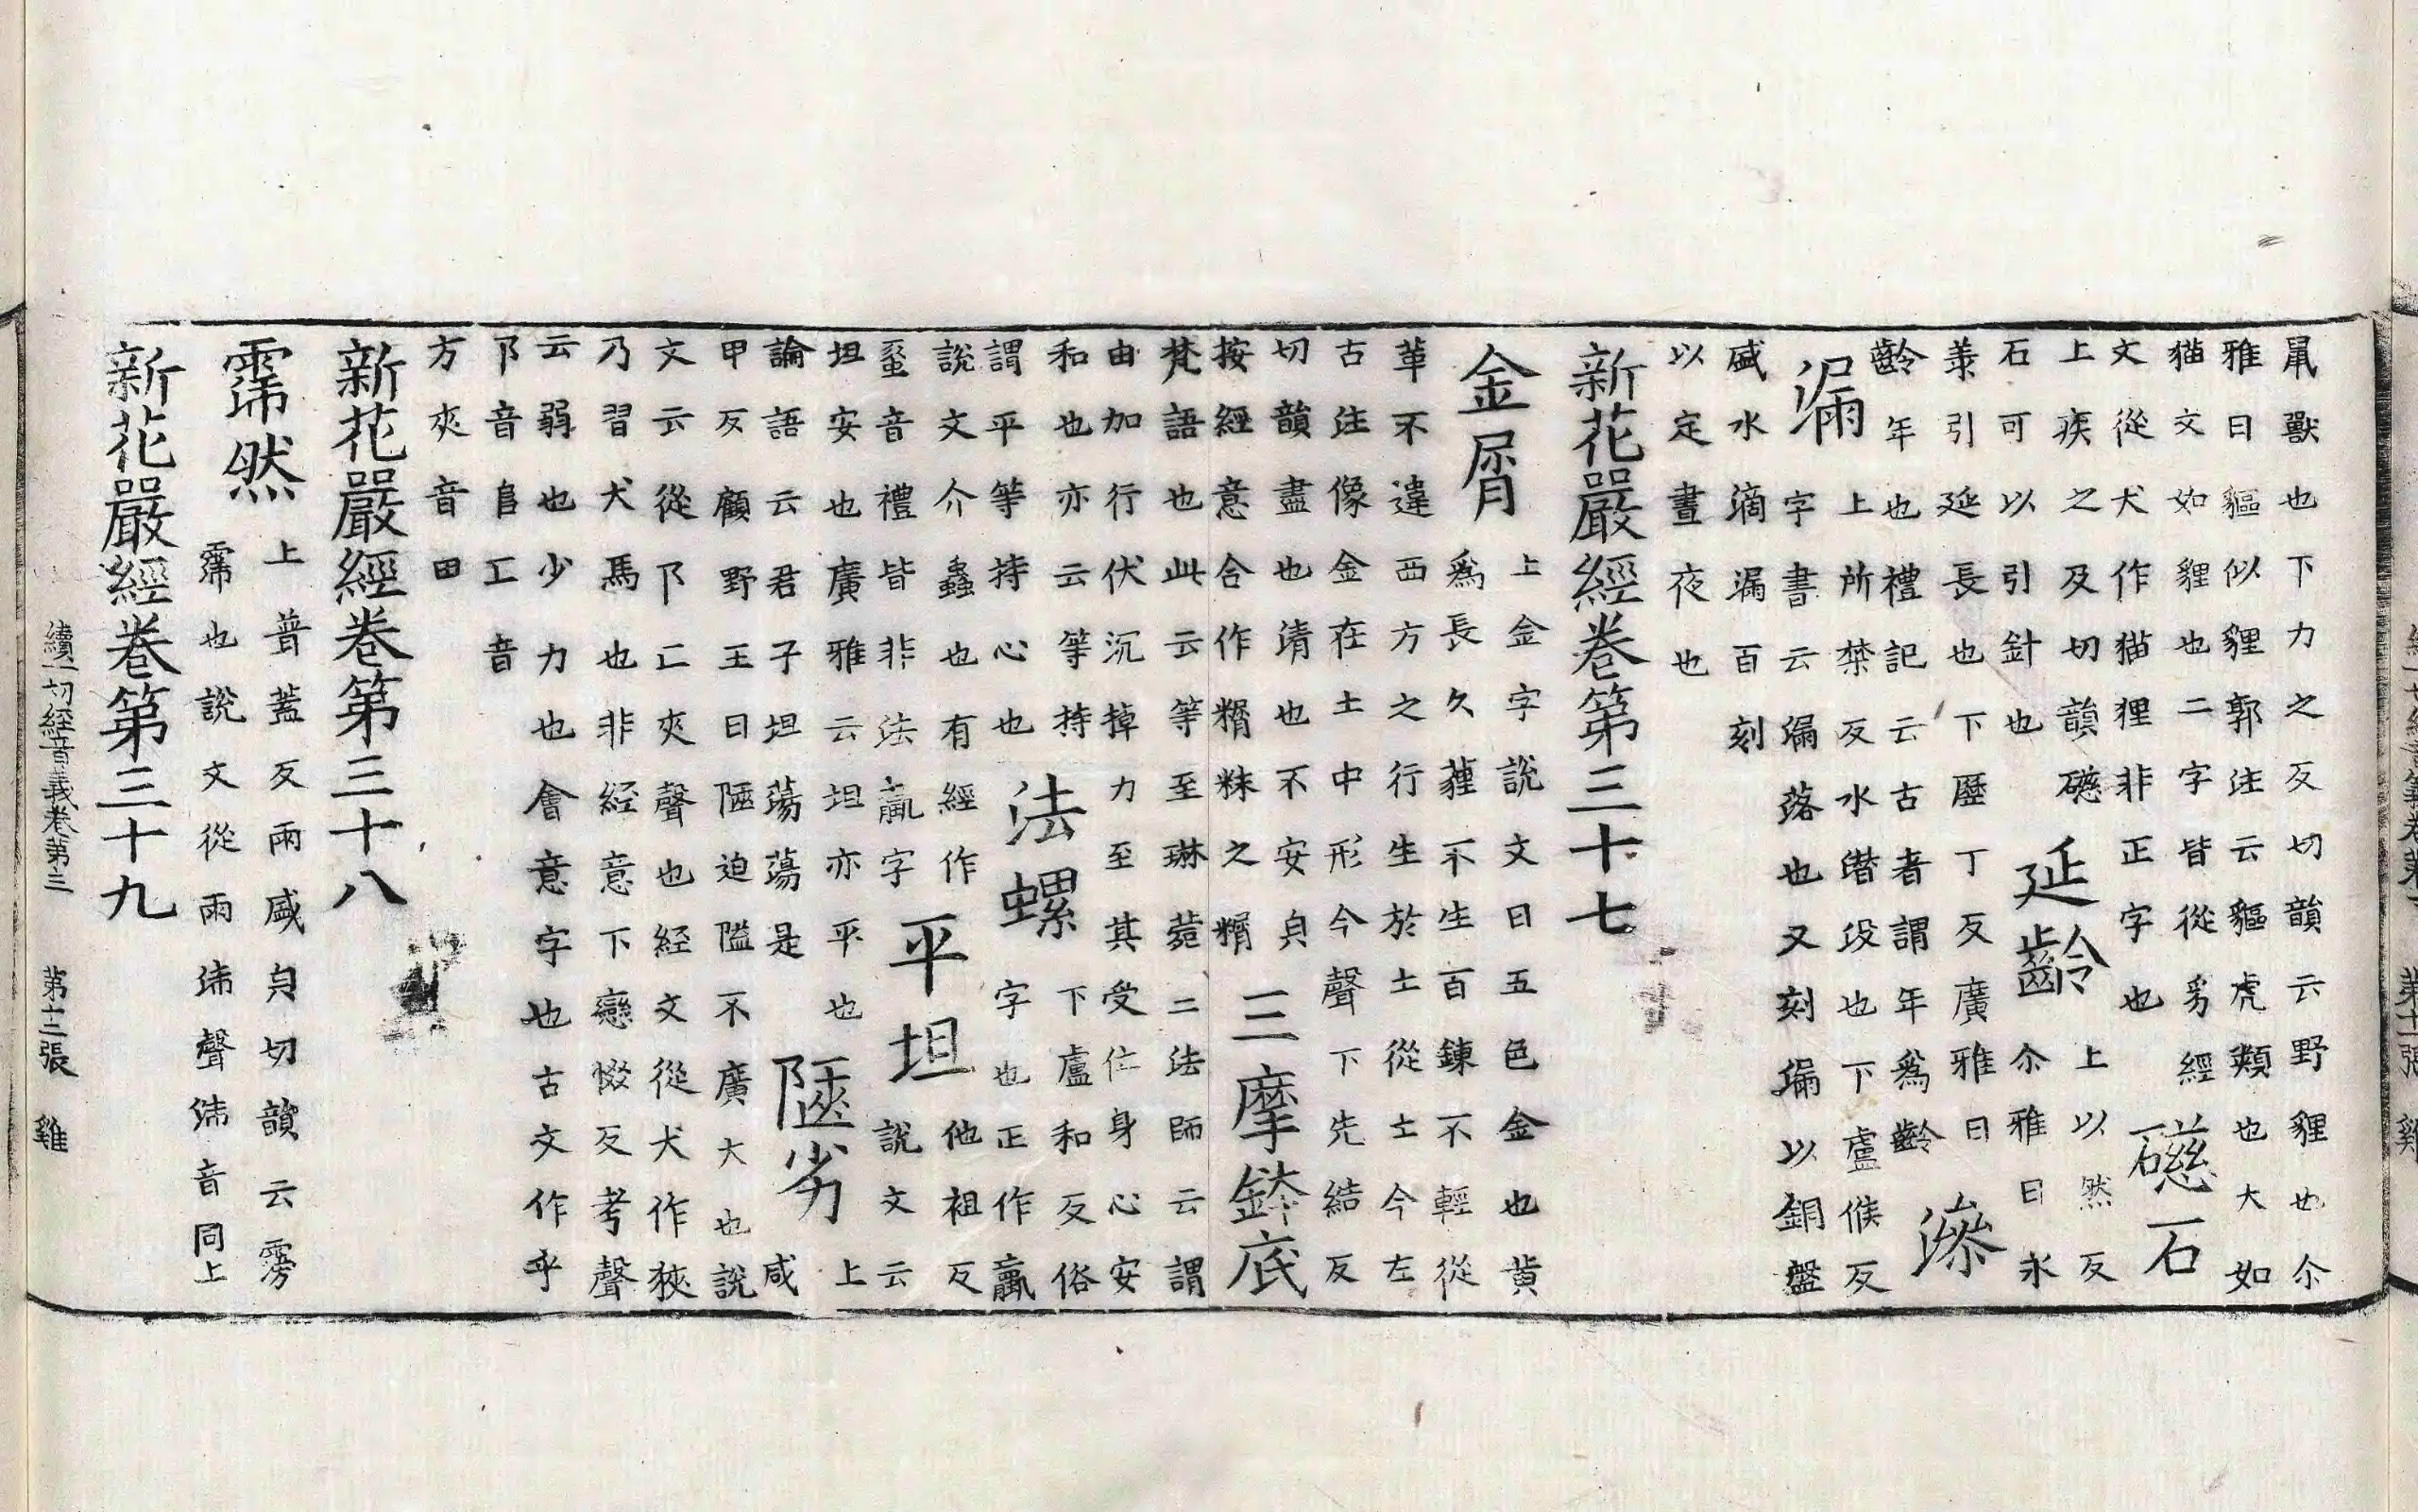 鼠獸也下力之反切韻云野貍也尒
雅曰貙似貍郭注云貙虎類也大如
猫文如貍也二字皆從豸經
文從犬作猫狸非正字也
磁石
上疾之及切韻磁
石可以引針也
延齡
上以然反
尒雅曰永
羕引延長也下歷丁反廣雅曰
齡年也禮記云古者謂年爲齡
滲
漏
上所禁反水潛没也下盧候反
字書云漏落也又刻漏以銅盤
盛水滴漏百刻
以定晝夜也
新花嚴經卷第三十七
金屑
上金字說文曰五色金也黃
爲長久薶不生百鍊不輕從
革不違西方之行生於土從土今左
古注像金在土中形今聲下先結反
切韻盡也清也不安皃
按經意合作糏粖之糏
三摩鉢底
梵語也此云等至琳菀二法師云謂
由加行伏沉掉力至其受仁身心安
和也亦云等持
謂平等持心也
法螺
下盧和反俗
字也正作蠃
說文介蟲也有經作
蝅音禮皆非法蠃字
平坦
他袒反
說文云
坦安也廣雅云坦亦平也
論語云君子坦蕩蕩是
陿劣
上
咸
甲反顧野王曰陿迫隘不廣大也說
文云從阝匚夾聲也経文從犬作狹
乃習犬馬也非経意下戀惙反考聲
云弱也少力也會意字也古文作
阝音𨸏匚音
方夾音田
新花嚴經卷第三十八
霈然
上普蓋反雨盛皃切韻云霶
霈也說文從雨沛聲沛音同上
新花嚴經卷第三十九
續一切経音義卷第三 第十二張 雞